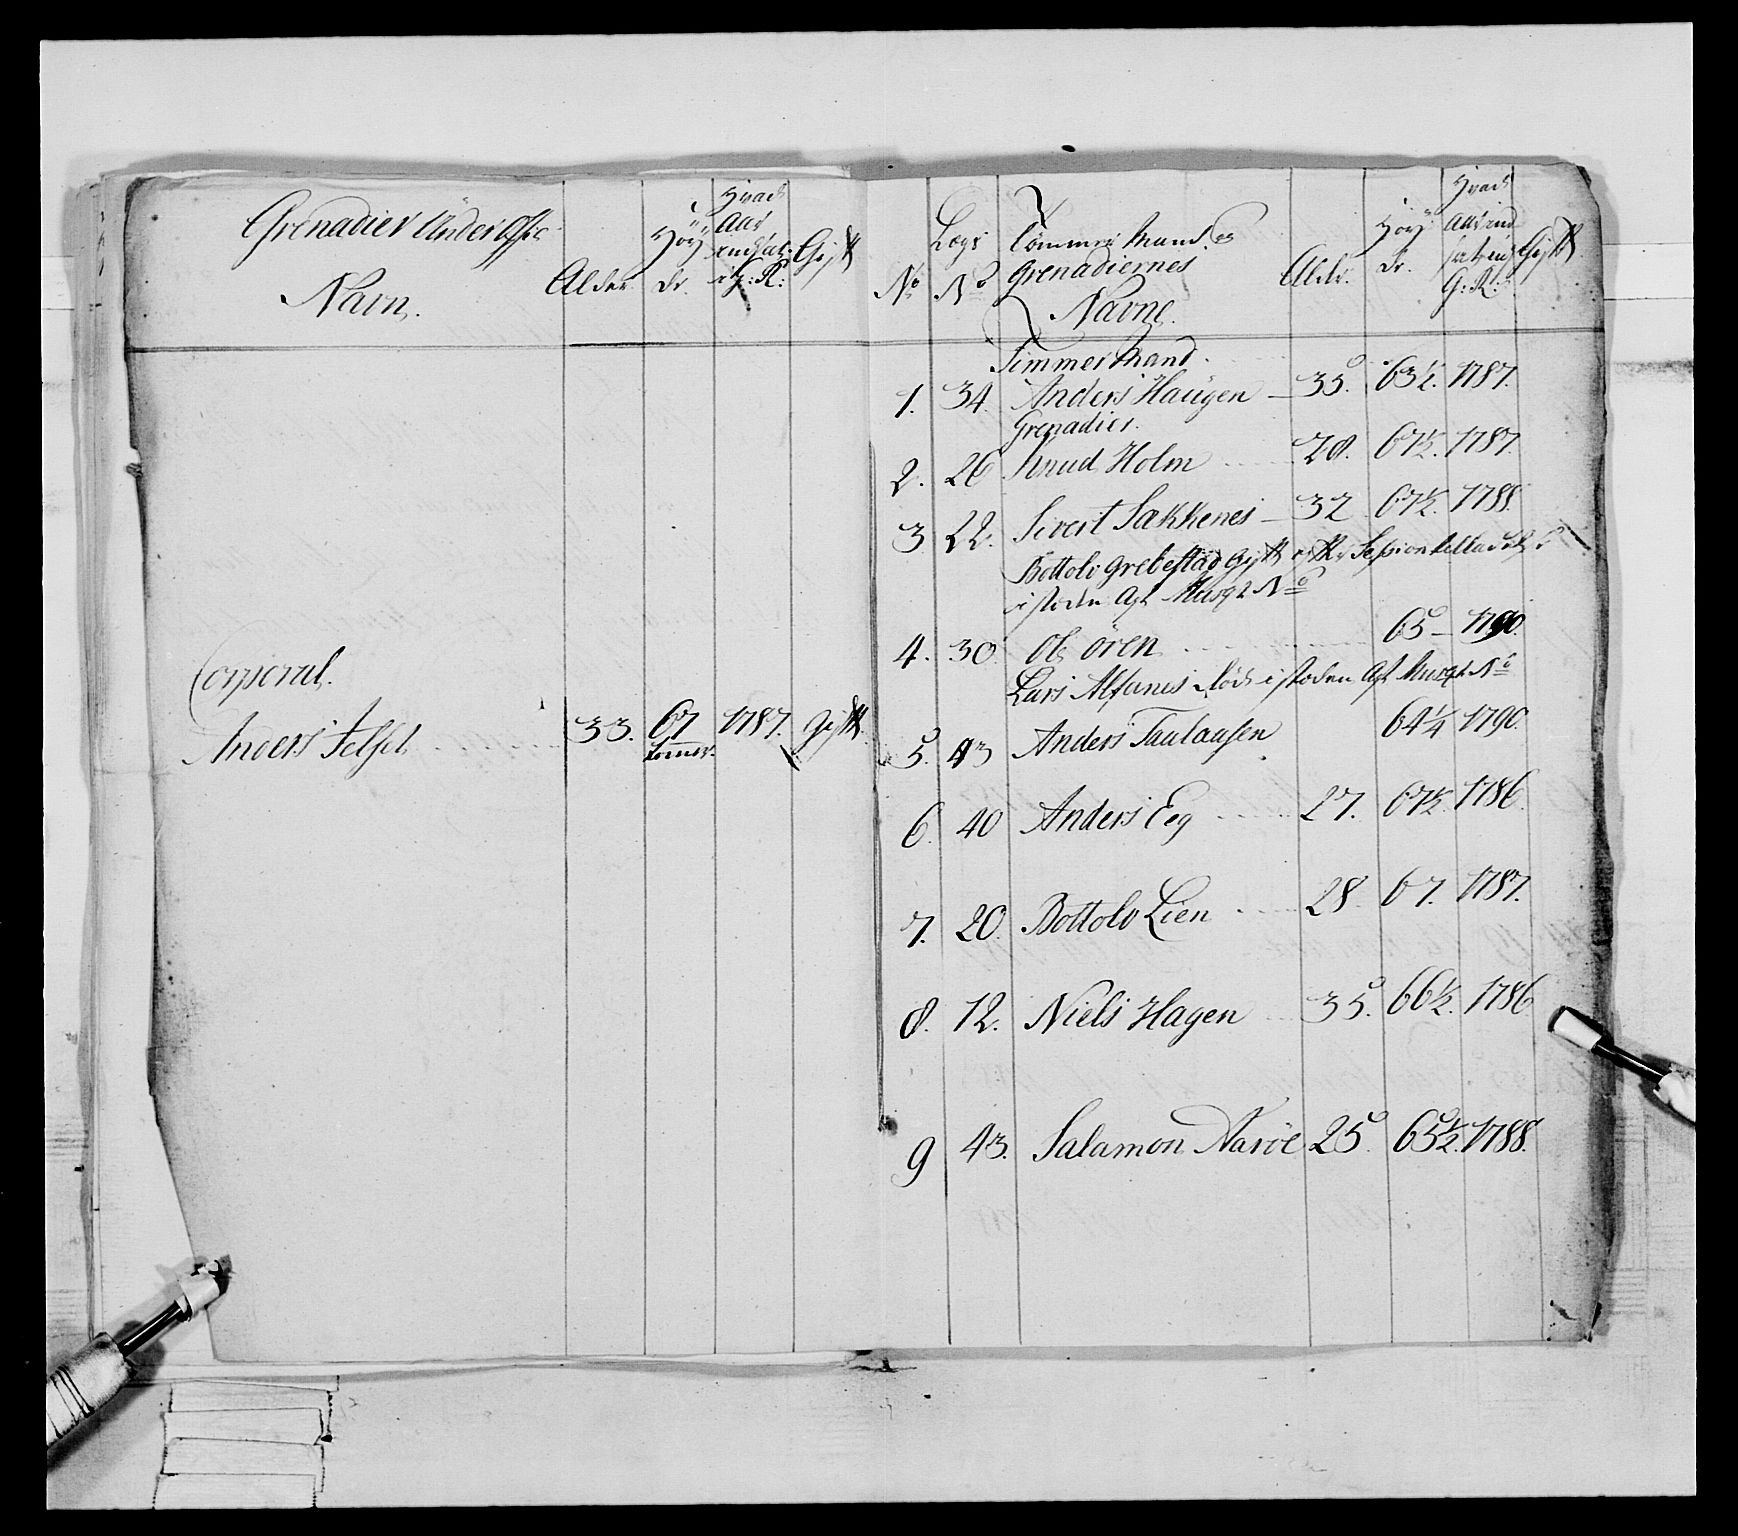 Grenadier Under Offic
Navn.
Alder
Høy
dr.
Hvad
Aar
Gift
Corporal.
Anders
33. 67 1787. Gift
Tommer.
No
Lægs
No
Tømmer Mand og
Grenadiernes
Navne.
Alder.
Høy
dr.
Hvad
Aar ind
sat i
G: R:
Gift
Timmermand.
1. 34. Anders Haugen 35. 63½. 1787.
Grenadier.
2. 26 Knud Holm 28. 67½. 1787.
3 22. Sivert Sakkenes 32 67½. 1788.
Bottolv Grebestad Gift
i steden Afl. Musqt No
4. 30. Ole Ören 65 1790.
Lars Alfarnes død i steden Afl Musqt No
5. 43 Anders Taulaasen 64¼ 1790.
6. 40 Anders Eeg 27. 67½. 1786.
7. 20. Bottolv Lien 28. 67. 1787.
8. 12. Niels Hagen 35. 66½. 1786
9 43. Salamon Naröe 25. 65½. 1788.